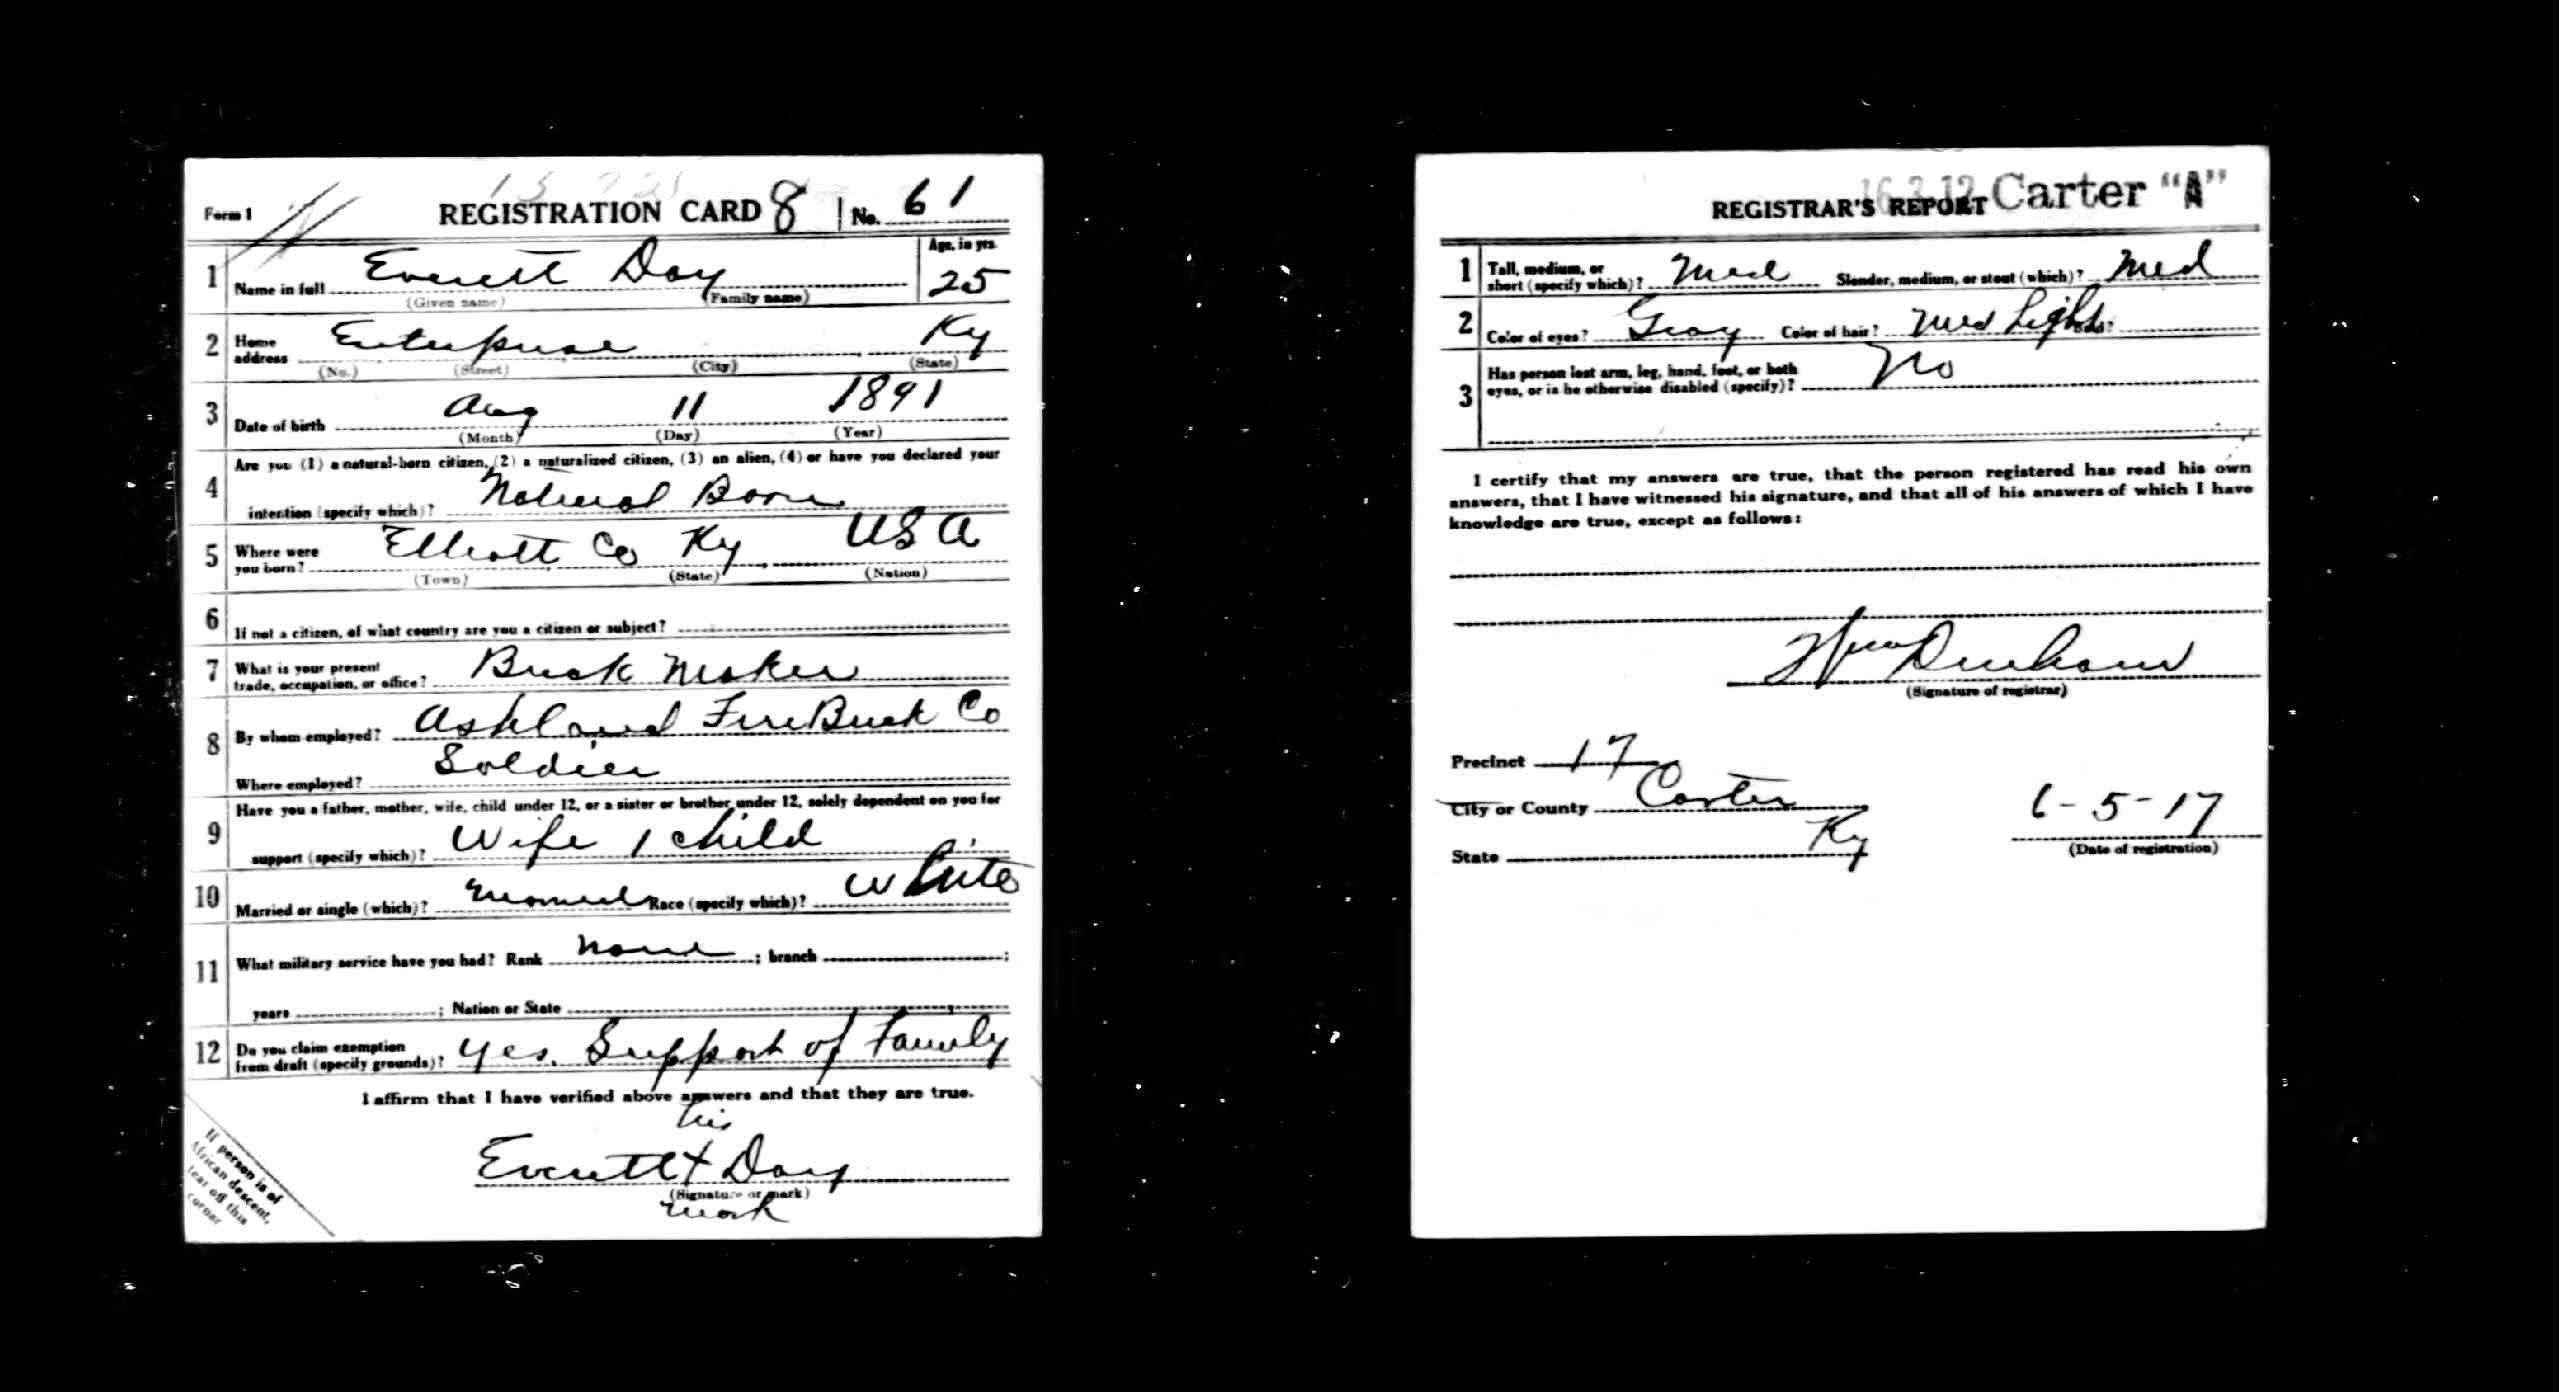 Form 1 REGISTRATION CARD 8 No. 61
1 Name in full Everett Day Age, in yrs. 25
(Given name) (Family name)
2 Home address Enterprise Ky
(No.) (Street) (City) (State)
3 Date of birth Aug 11 1891
(Month) (Day) (Year)
Are you (1) a natural-born citizen, (2) a naturalized citizen, (3) an alien, (4) or have you declared your
4 intention (specify which)? Natural Born
5 Where were you born? Elliott Co Ky USA
(Town) (State) (Nation)
6 If not a citizen, of what country are you a citizen or subject?
7 What is your present trade, occupation, or office? Brick Maker
8 By whom employed? Ashland Fire Brick Co
Where employed? Soldier
Have you a father, mother, wife, child under 12, or a sister or brother under 12, solely dependent on you for
9 support (specify which)? Wife 1 child
10 Married or single (which)? Married Race (specify which)? White
11 What military service have you had? Rank None ; branch ;
years ; Nation or State
12 Do you claim exemption from draft (specify grounds)? Yes. Support of Family
I affirm that I have verified above answers and that they are true.
his
Everett X Day
(Signature or mark)
mark
If person is of
African descent,
tear off this
corner
REGISTRAR'S REPORT Carter "A"
1 Tall, medium, or short (specify which)? Med Slender, medium, or stout (which)? Med
2 Color of eyes? Gray Color of hair? Med Light Bald?
3 Has person lost arm, leg, hand, foot, or both eyes, or is he otherwise disabled (specify)? No
I certify that my answers are true, that the person registered has read his own
answers, that I have witnessed his signature, and that all of his answers of which I have
knowledge are true, except as follows:
Wm Dunham
(Signature of registrar)
Precinct 17
City or County Carter
State Ky
6-5-17
(Date of registration)